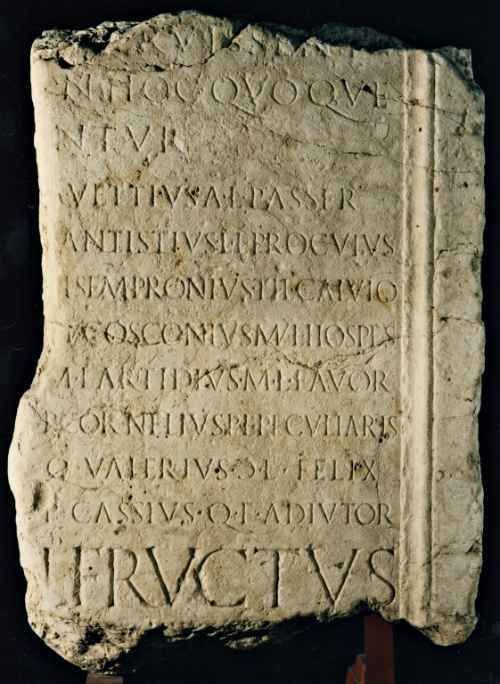 N · HOC QVOQVE
NTVR
VETTIVS · A · L · PASSER
ANTISTIVS · L · L · PROCVLVS
SEMPRONIVS · L · L · CALVIO
OSCONIVS · M · L · HOSPES
M · LARTIDIVS · M · L · FAVOR
CORNELIVS · P · L · PECVLIARIS
Q · VALERIVS · Ɔ · L · FELIX
CASSIVS · Q · F · ADIVTOR
FRVCTVS